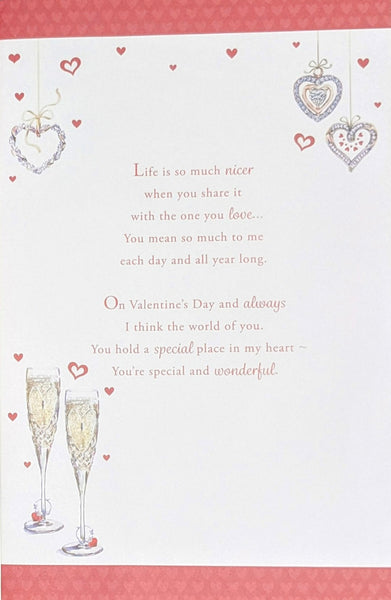 Life is so much nicer
when you share it
with the one you love...
You mean so much to me
each day and all year long.
On Valentine's Day and always
I think the world of you.
You hold a special place in my heart ~
You're special and wonderful.